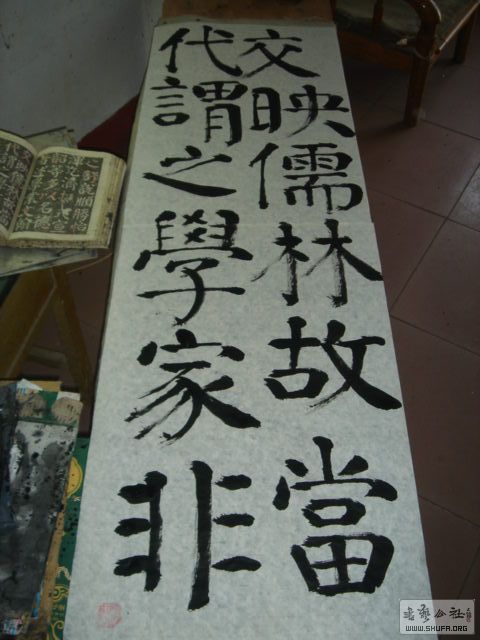 交映儒林故當
代謂之學家非
書藝公社
WWW.SHUFA.ORG